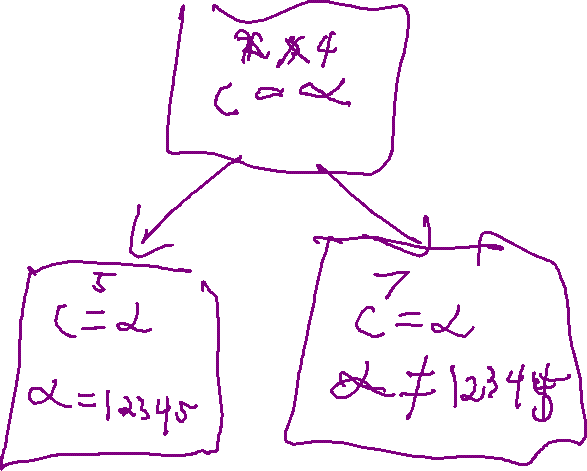 4
c = α
5
c = α
α = 12345
7
c = α
α ≠ 12345